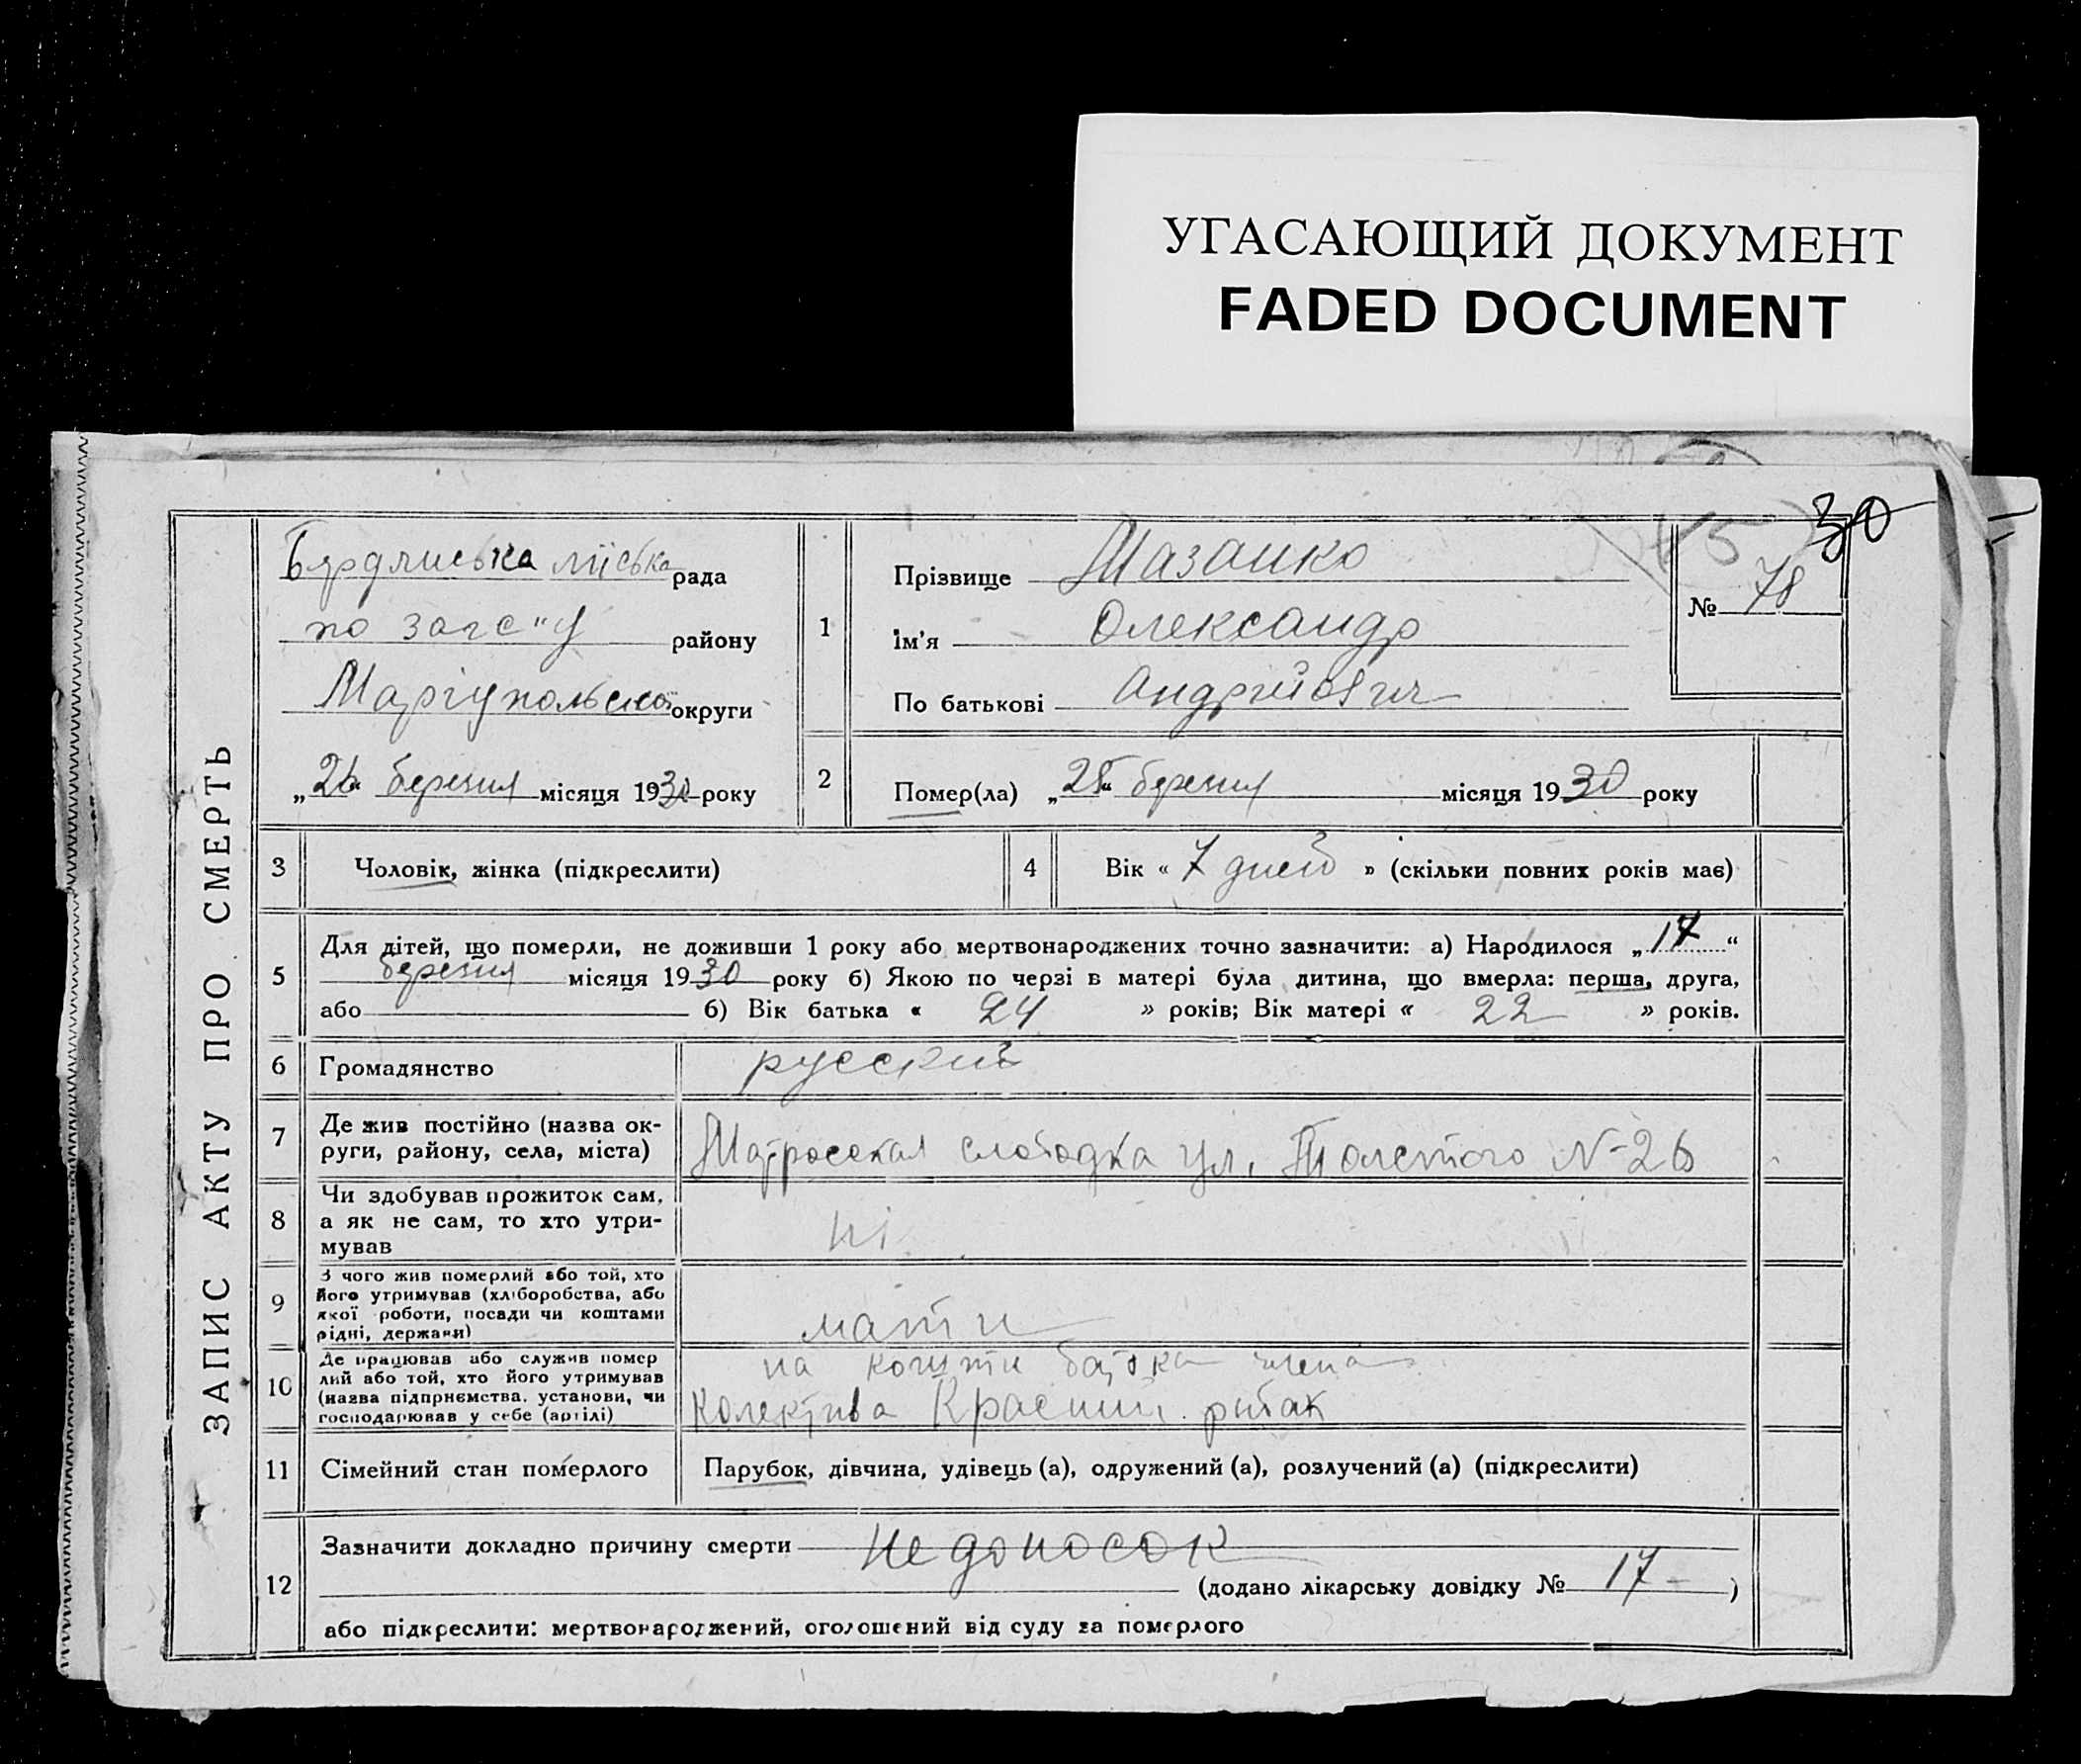 УГАСАЮЩИЙ ДОКУМЕНТ
FADED DOCUMENT
30
ЗАПИС АКТУ ПРО СМЕРТЬ
Бердянська міська рада
по загс"у району
Маріупольської округи
„26“ березня місяця 1930 року
1
Прізвище Мазанко
Ім'я Олександр
По батькові Андрійович
№ 78
2
Помер(ла) „25“ березня місяця 1930 року
3 Чоловік, жінка (підкреслити)
4 Вік « 7 дней » (скільки повних років має)
5
Для дітей, що померли, не доживши 1 року або мертвонароджених точно зазначити: а) Народилося „17“
березня місяця 1930 року б) Якою по черзі в матері була дитина, що вмерла: перша, друга,
або б) Вік батька « 24 » років; Вік матері « 22 » років.
6 Громадянство русский
7 Де жив постійно (назва ок-
руги, району, села, міста) Матросская слободка ул. Толстого №26
8 Чи здобував прожиток сам,
а як не сам, то хто утри-
мував ні
9 З чого жив померлий або той, хто
його утримував (хліборобства, або
якої роботи, посади чи коштами
рідні, держави) мати
10 Де працював або служив помер
лий або той, хто його утримував
(назва підпрнємства, установи, чи
господарював у себе (артілі)
на кошти батька члена
Колектива Красний рыбак
11 Сімейний стан померлого Парубок, дівчина, удівець (а), одружений (а), розлучений (а) (підкреслити)
12
Зазначити докладно причину смерти Недоносок
(додано лікарську довідку № 17 )
або підкреслити: мертвонароджений, оголошений від суду за померлого